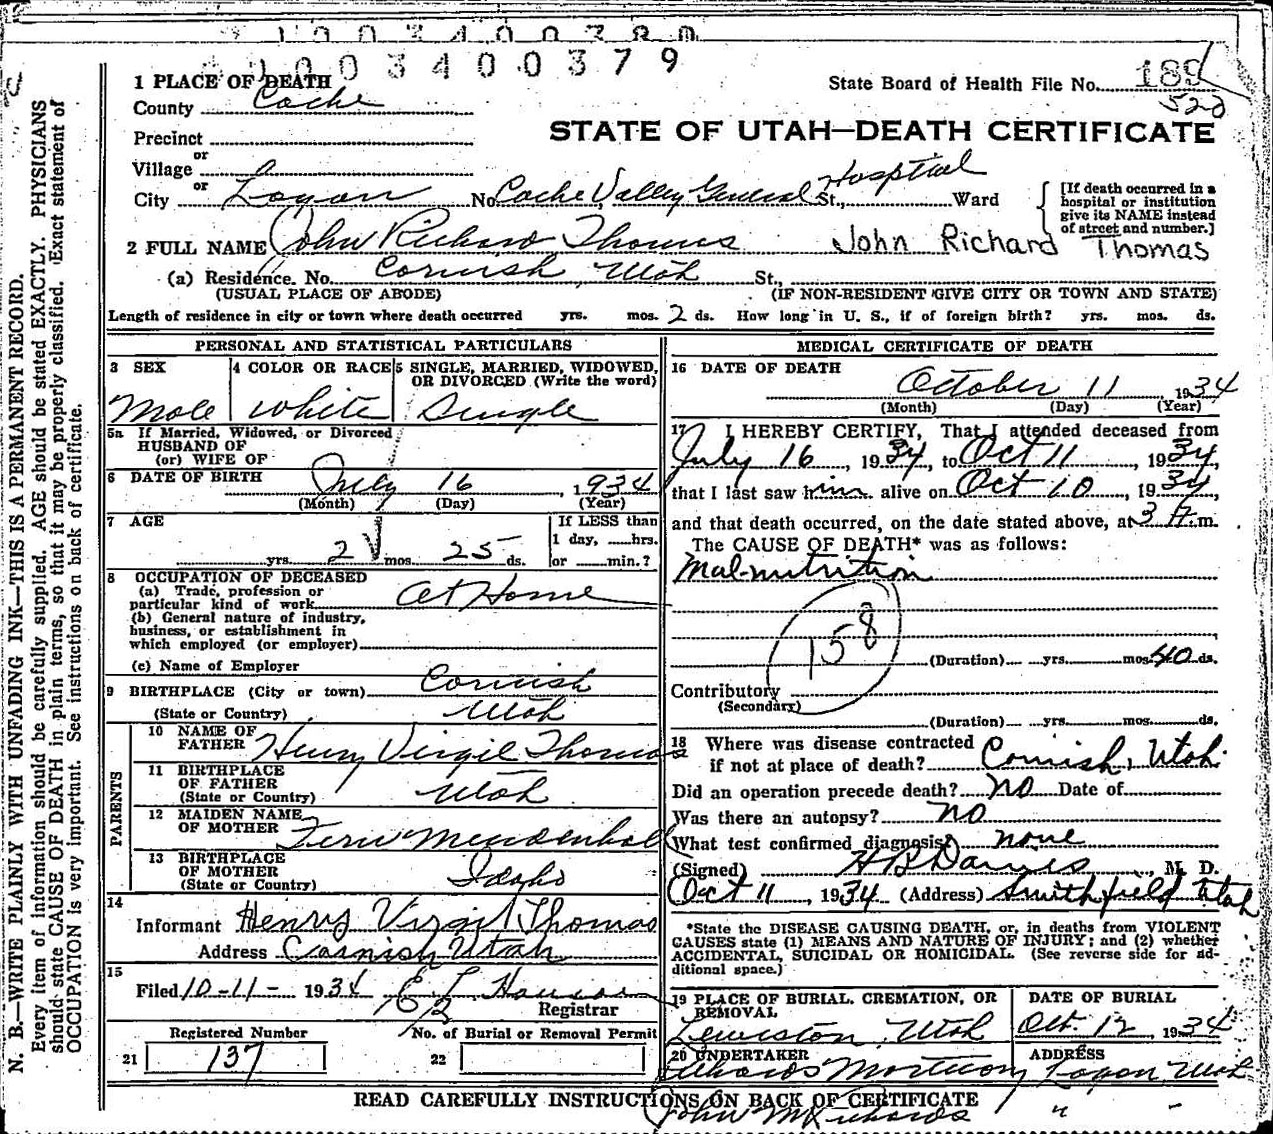 1003400380
1003400379
1 PLACE OF DEATH
State Board of Health File No. 189
522
County Cache
STATE OF UTAH—DEATH CERTIFICATE
Precinct
or
Village
or
City Logan No. Cache Valley General Hospital St., Ward
[If death occurred in a hospital or institution give its NAME instead of street and number.]
2 FULL NAME John Richard Thomas John Richard Thomas
(a) Residence. No. Cornish, Utah St.,
(USUAL PLACE OF ABODE) (IF NON-RESIDENT GIVE CITY OR TOWN AND STATE)
Length of residence in city or town where death occurred yrs. mos. 2 ds. How long in U. S., if of foreign birth? yrs. mos. ds.
PERSONAL AND STATISTICAL PARTICULARS
3 SEX
Male
4 COLOR OR RACE
White
5 SINGLE, MARRIED, WIDOWED, OR DIVORCED (Write the word)
Single
5a If Married, Widowed, or Divorced
HUSBAND OF
(or) WIFE OF
6 DATE OF BIRTH July 16, 1934
(Month) (Day) (Year)
7 AGE
yrs. 2 mos. 25 ds.
If LESS than
1 day, ......hrs.
or ......min.?
8 OCCUPATION OF DECEASED
(a) Trade, profession or
particular kind of work At Home
(b) General nature of industry,
business, or establishment in
which employed (or employer)
(c) Name of Employer
9 BIRTHPLACE (City or town) Cornish
(State or Country) Utah
PARENTS
10 NAME OF FATHER Henry Virgil Thomas
11 BIRTHPLACE OF FATHER (State or Country) Utah
12 MAIDEN NAME OF MOTHER Fern Mendenhall
13 BIRTHPLACE OF MOTHER (State or Country) Idaho
14
Informant Henry Virgil Thomas
Address Cornish Utah
15
Filed 10-11- 1934
Registrar
Registered Number
21 137
No. of Burial or Removal Permit
22
MEDICAL CERTIFICATE OF DEATH
16 DATE OF DEATH
October 11 1934
(Month) (Day) (Year)
17 I HEREBY CERTIFY, That I attended deceased from
July 16, 1934, to Oct 11, 1934,
that I last saw him alive on Oct 10, 1934
and that death occurred, on the date stated above, at 3 A.m.
The CAUSE OF DEATH* was as follows:
Mal-nutrition
158
(Duration) yrs. mos. 40 ds.
Contributory
(Secondary)
(Duration) yrs. mos. ds.
18 Where was disease contracted
if not at place of death? Cornish, Utah
Did an operation precede death? No Date of
Was there an autopsy? No
What test confirmed diagnosis? none
(Signed) M. D.
Oct 11, 1934 (Address) Smithfield Utah
*State the DISEASE CAUSING DEATH, or, in deaths from VIOLENT
CAUSES state (1) MEANS AND NATURE OF INJURY; and (2) whether
ACCIDENTAL, SUICIDAL OR HOMICIDAL. (See reverse side for ad-
ditional space.)
19 PLACE OF BURIAL, CREMATION, OR REMOVAL
Lewiston, Utah
DATE OF BURIAL
Oct. 12 1934
20 UNDERTAKER
Mortuary
ADDRESS
Logan Utah
READ CAREFULLY INSTRUCTIONS ON BACK OF CERTIFICATE
John M Richards " -
N. B.—WRITE PLAINLY WITH UNFADING INK—THIS IS A PERMANENT RECORD.
Every item of information should be carefully supplied. AGE should be stated EXACTLY. PHYSICIANS
should state CAUSE OF DEATH in plain terms, so that it may be properly classified. Exact statement of
OCCUPATION is very important. See instructions on back of certificate.